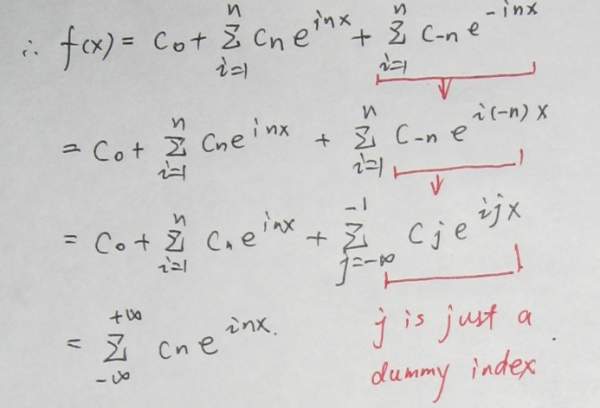 ∴ f(x) = C₀ + ∑_{i=1}^{n} Cₙ e^{inx} + ∑_{i=1}^{n} C₋ₙ e^{-inx}
= C₀ + ∑_{i=1}^{n} Cₙ e^{inx} + ∑_{i=1}^{n} C₋ₙ e^{i(-n)x}
= C₀ + ∑_{i=1}^{n} Cₙ e^{inx} + ∑_{j=-∞}^{-1} Cⱼ e^{ijx}
= ∑_{-∞}^{+∞} Cₙ e^{inx}.
j is just a
dummy index.